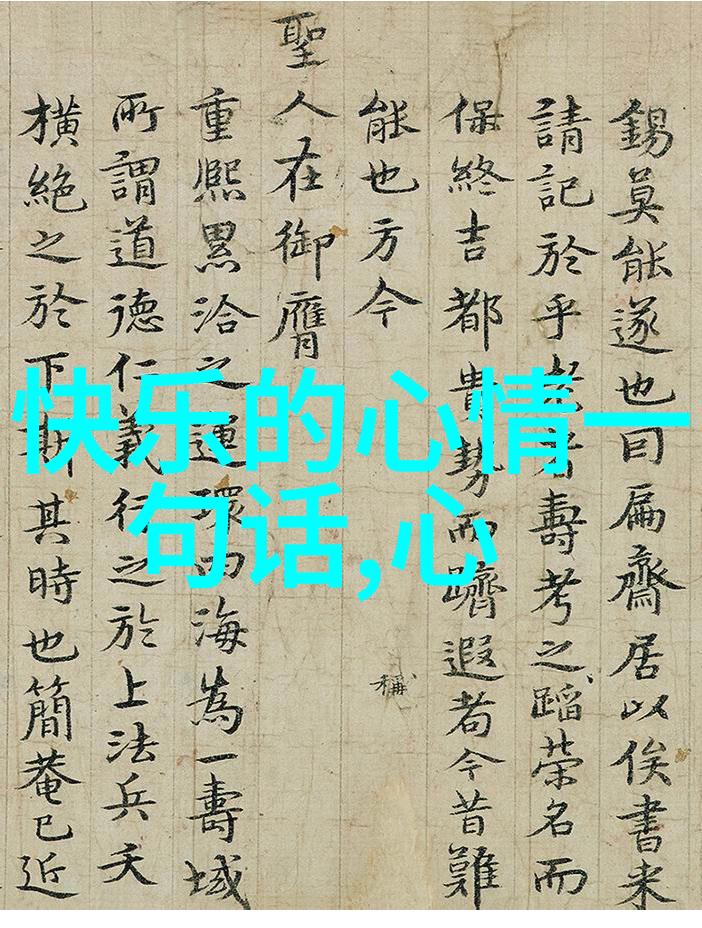 錫莫能遂也曰扁齋居以俟書来
請記於乎老者壽考之蹈荣名而
保終吉都貴勢而躋遐耇今昔難
能也方今
稱
聖人在御膺
重熙累洽之運環四海為一壽域
所謂道德仁義行之於上法兵夭
横絶之於下斯其時也簡菴已近
快乐的心情一
句话,心